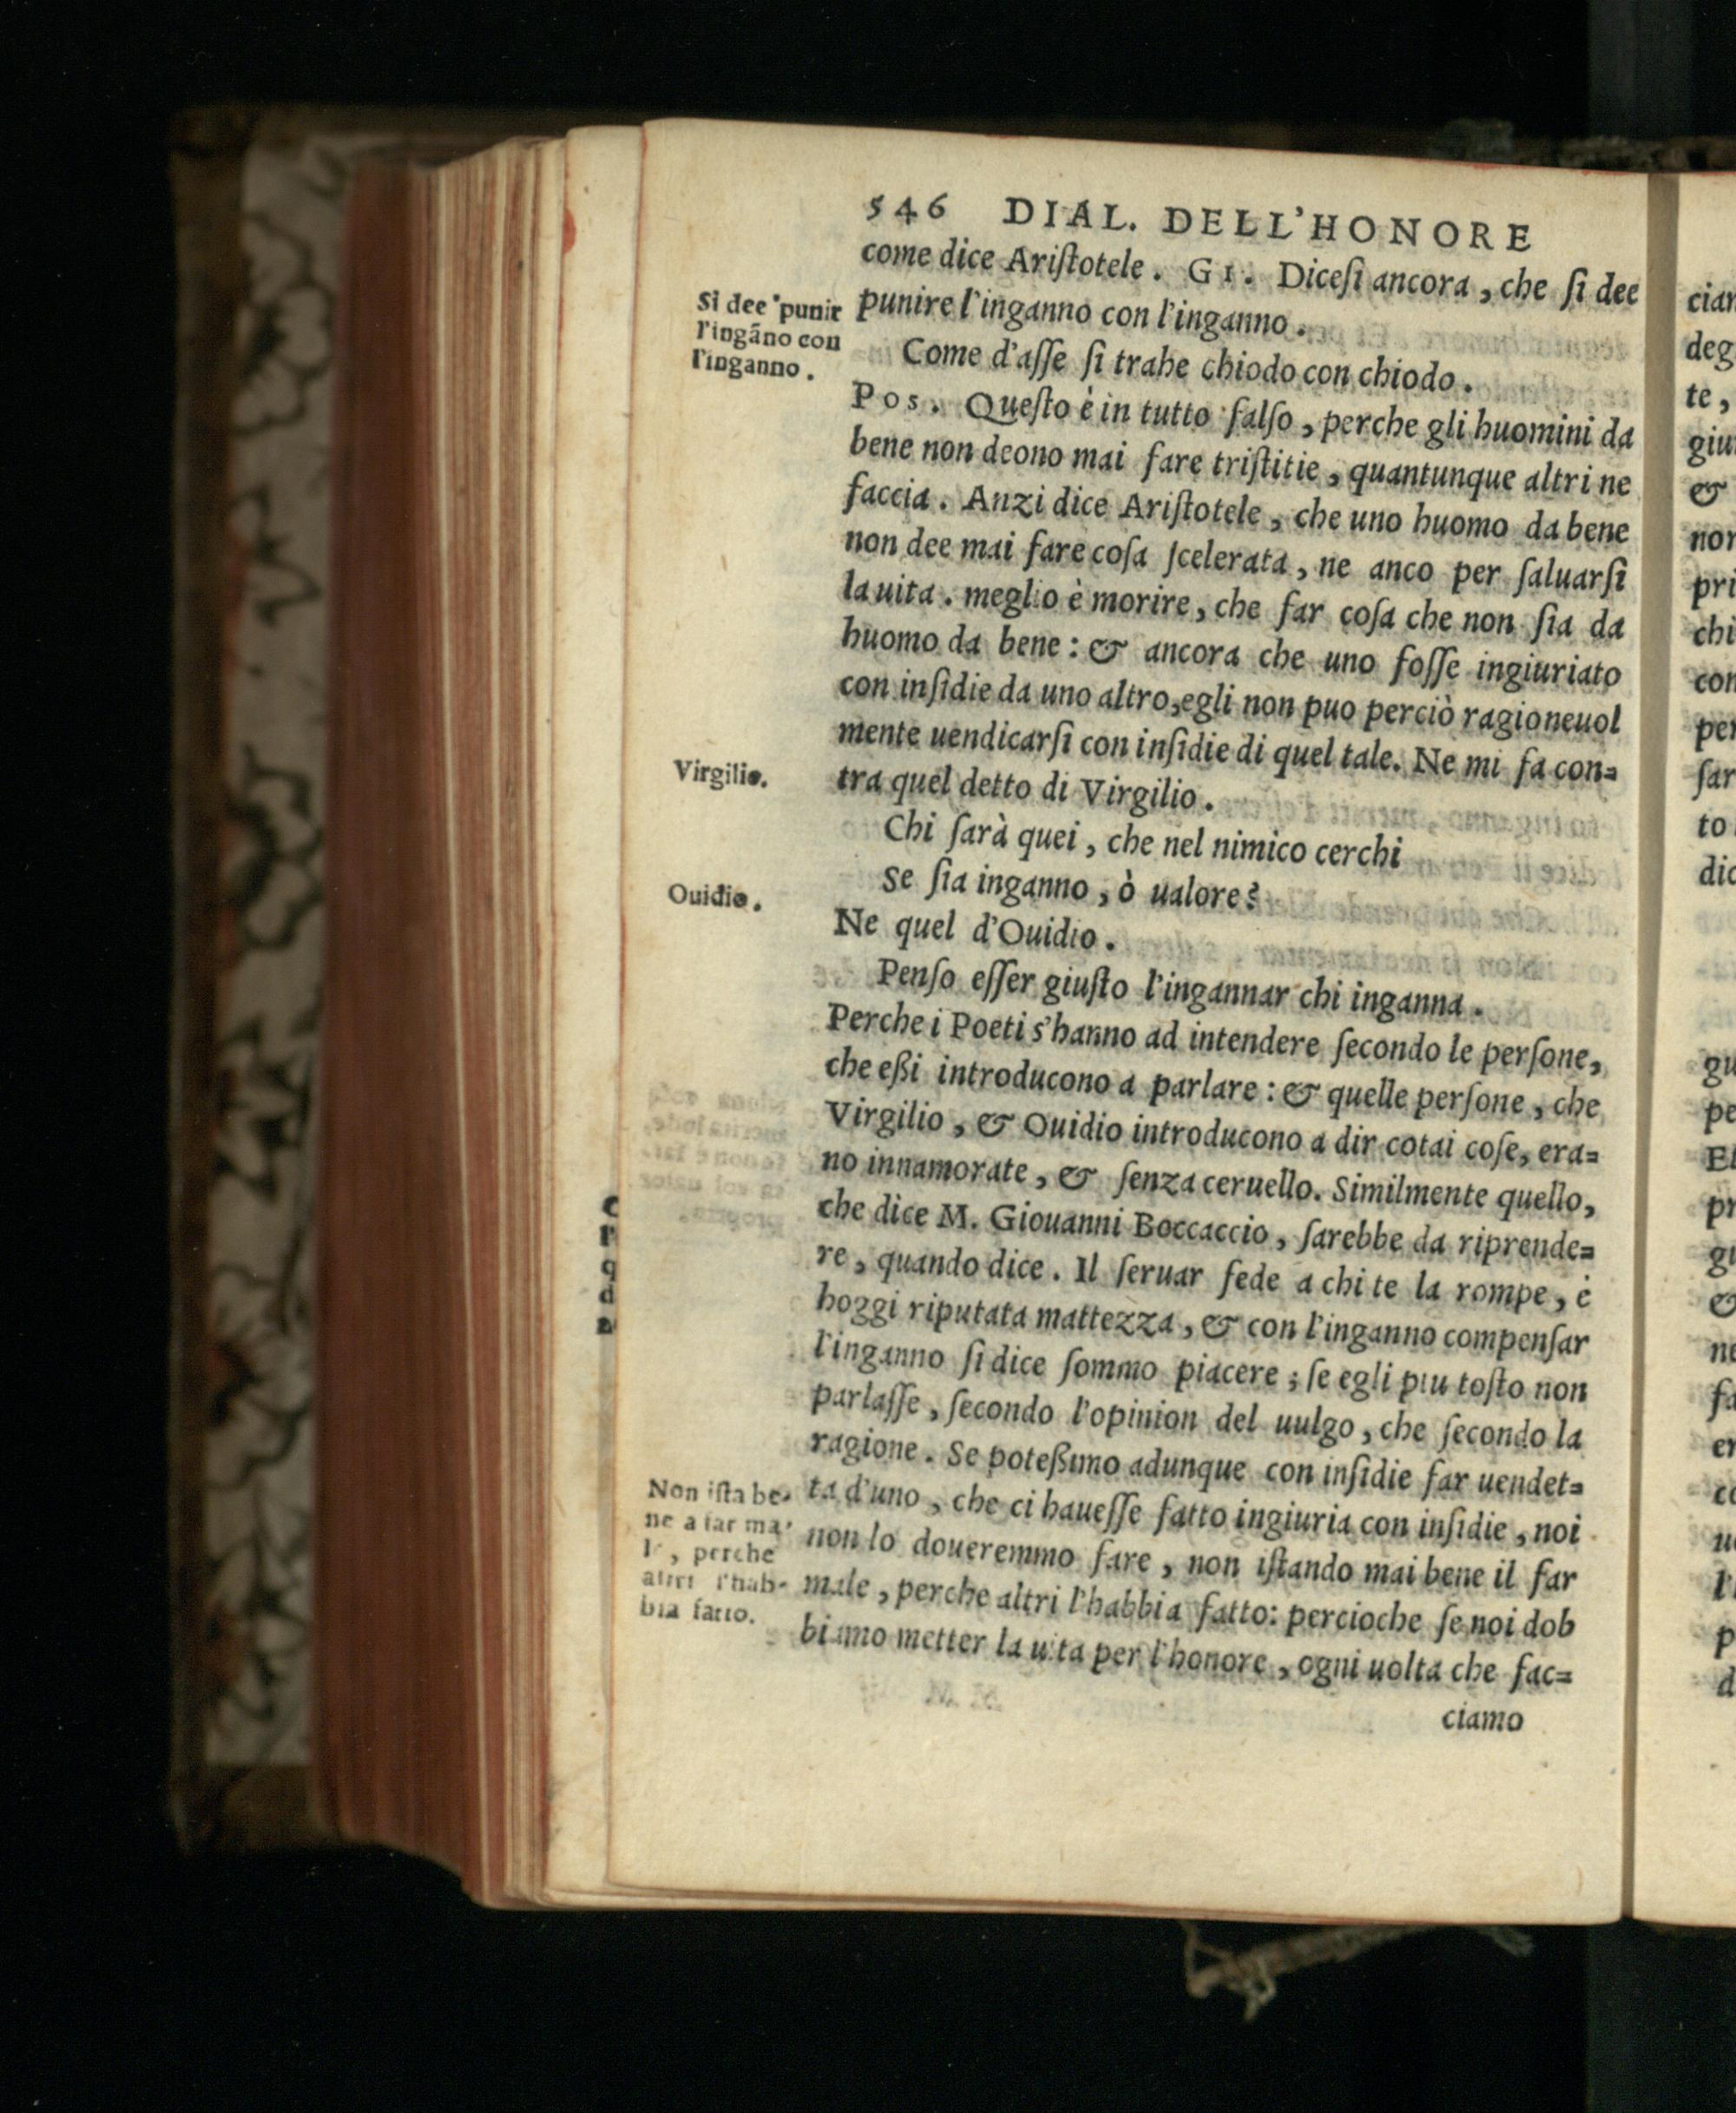 546 DIAL. DELL'HONORE
come dice Ariſtotele. GI. Diceſi ancora, che ſi dee
punire l'inganno con l'inganno.
Si dee punir
l'ingãno con
l'inganno.
Come d'aſſe ſi trahe chiodo con chiodo.
Pos. Queſto è in tutto falſo, perche gli huomini da
bene non deono mai fare triſtitie, quantunque altri ne
faccia. Anzi dice Ariſtotele, che uno huomo da bene
non dee mai fare coſa ſcelerata, ne anco per ſaluarſi
la uita. meglio è morire, che far coſa che non ſia da
huomo da bene: & ancora che uno foſſe ingiuriato
con inſidie da uno altro, egli non puo perciò ragioneuol
mente uendicarſi con inſidie di quel tale. Ne mi fa con=
Virgilio.
tra quel detto di Virgilio.
Chi ſarà quei, che nel nimico cerchi
Se ſia inganno, ò ualore?
Ouidio.
Ne quel d'Ouidio.
Penſo eſſer giuſto l'ingannar chi inganna.
Perche i Poeti s'hanno ad intendere ſecondo le perſone,
che eßi introducono a parlare: & quelle perſone, che
Virgilio, & Ouidio introducono a dir cotai coſe, era=
no innamorate, & ſenza ceruello. Similmente quello,
che dice M. Giouanni Boccaccio, ſarebbe da riprende=
re, quando dice. Il ſeruar fede a chi te la rompe, è
hoggi riputata mattezza, & con l'inganno compenſar
l'inganno ſi dice ſommo piacere; ſe egli piu toſto non
parlaſſe, ſecondo l'opinion del uulgo, che ſecondo la
ragione. Se poteßimo adunque con inſidie far uendet=
ta d'uno, che ci haueſſe fatto ingiuria con inſidie, noi
non lo doueremmo fare, non iſtando mai bene il far
male, perche altri l'habbia fatto: percioche ſe noi dob
biamo metter la uita per l'honore, ogni uolta che fac=
Non iſta be-
ne a far ma-
le, perche
altri l'hab-
bia fatto.
ciamo
cian
deg
te,
giu
&
non
pri
chi
con
per
ſar
to
dic
gu
pe
El
pr
gi
&
ne
fa
er
co
ue
l'i
p
d